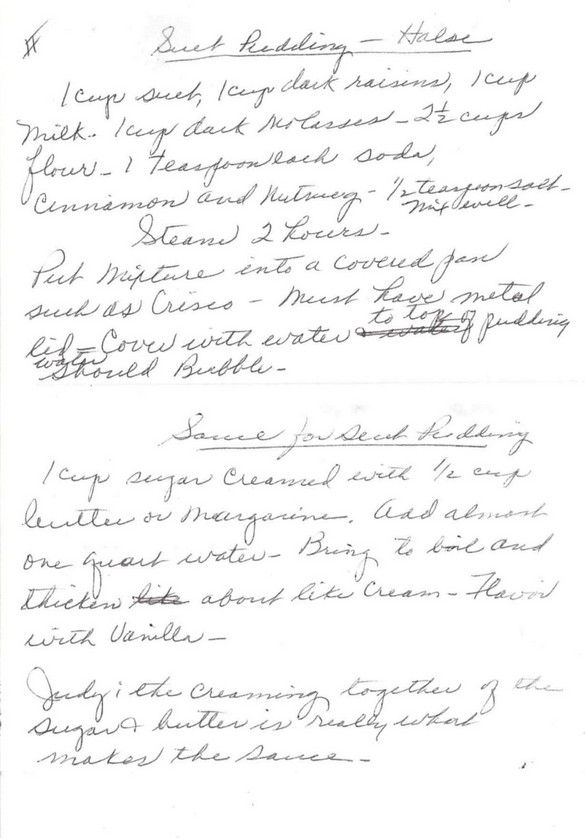 Suet Pudding - Halse
1 cup suet, 1 cup dark raisins, 1 cup
Milk. 1 cup dark Molasses - 2½ cups
flour - 1 Teaspoon each soda,
Cinnamon and Nutmeg - ½ teaspoon salt -
Mix well -
Steam 2 hours -
Put Mixture into a covered pan
such as Crisco - Must have metal
lid = Cover with water to top of pudding
water should Bubble -
Sauce for Suet Pudding
1 cup sugar creamed with ½ cup
butter or Margarine. Add almost
one quart water - Bring to boil and
thicken like about like Cream - Flavor
with Vanilla -
Judy; the creaming together of the
sugar & butter is really what
makes the sauce -